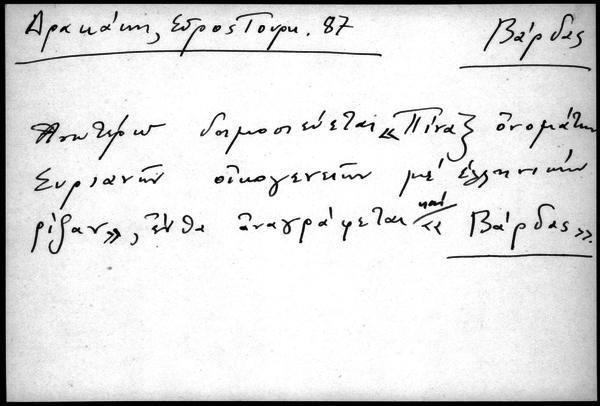 Δρακάκη, Σῦρος Τουρκ. 87
Βάρδας
Ἀνωτέρω δημοσιεύεται «Πίναξ ὀνομάτων
Συριανῶν οἰκογενειῶν μέ ἑλληνικήν
ρίζαν», ἔνθα ἀναγράφεται καί «Βάρδας».